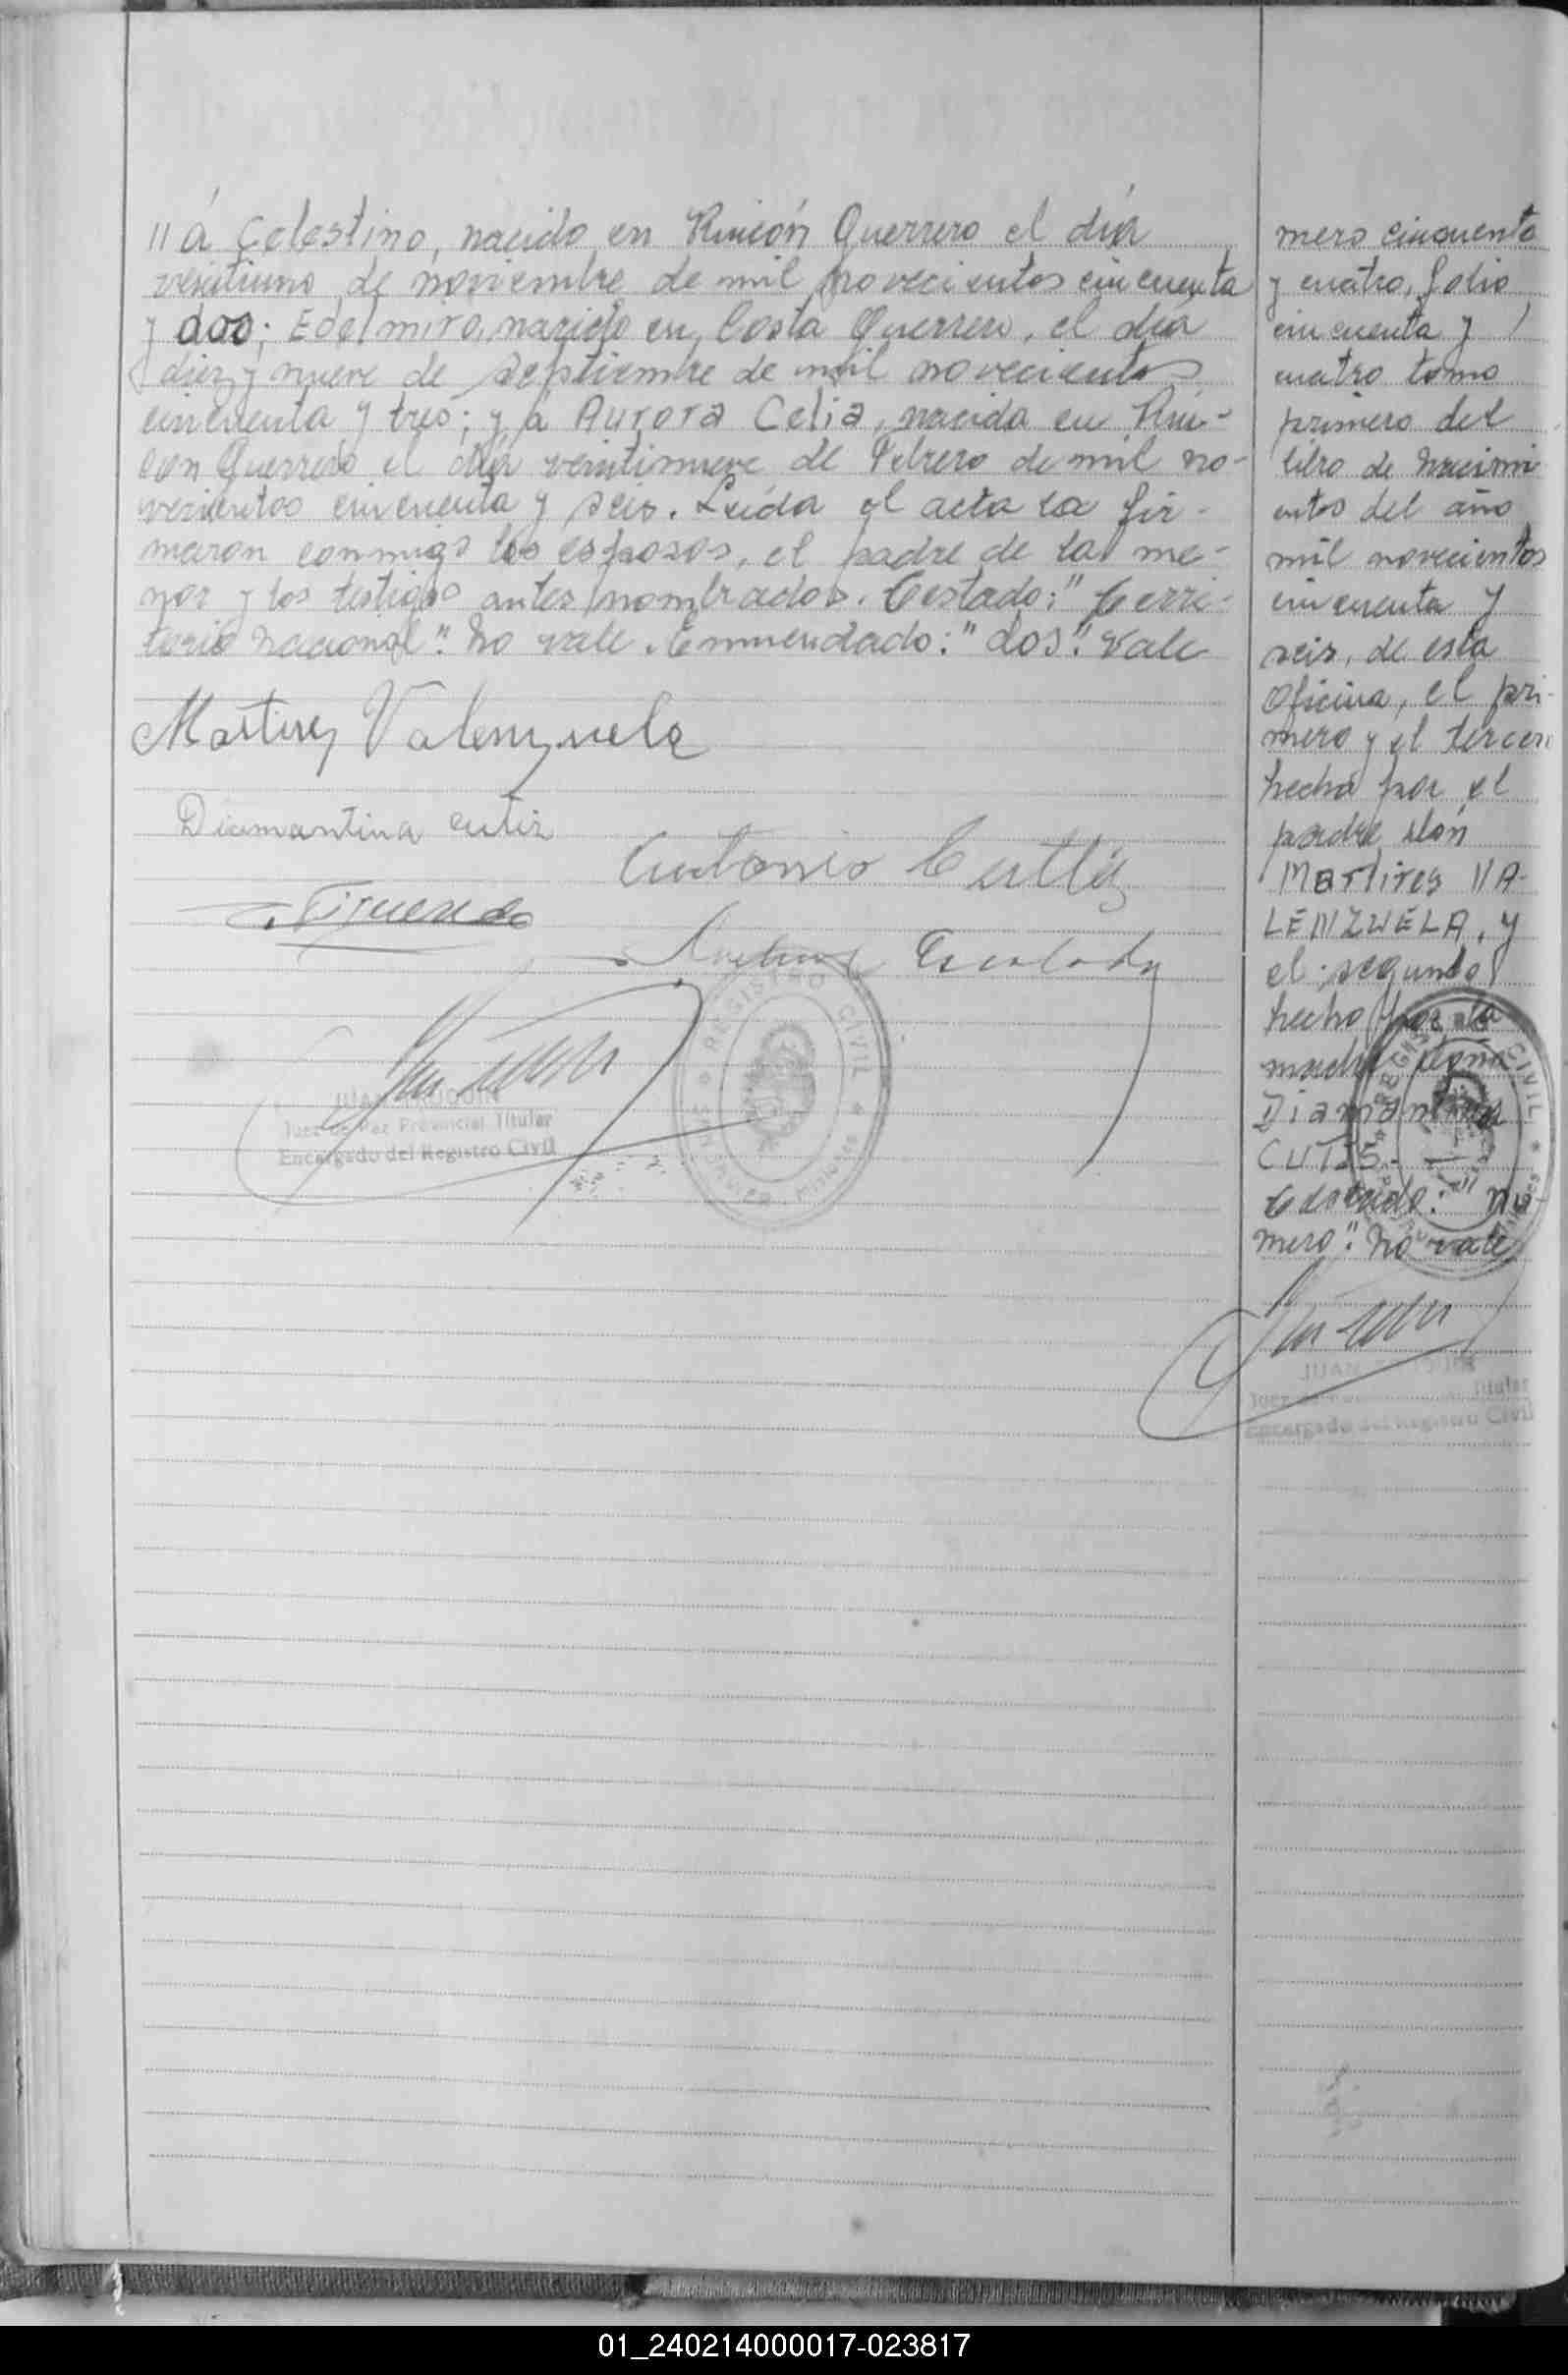 " á Celestino, nacido en Rincón Guerrero el día
veintiuno de noviembre de mil novecientos cincuenta
y dos; Edelmiro, nacido en Costa Guerrero, el día
diez y nueve de septiembre de mil novecientos
cincuenta y tres; y á Aurora Celia, nacida en Rin-
con Guerrero el día veintinueve de Febrero de mil no-
vecientos cincuenta y seis. Leída el acta la fir-
maron conmigo los esposos, el padre de la me-
nor y los testigos antes nombrados. Testado: "Terri-
torio Nacional". No vale. Enmendado: "dos". Vale
Martires Valenzuela
Diamantina cutis
Antonio
REGISTRO CIVIL
JUAN
Juez de Paz Provincial Titular
Encargado del Registro Civil
mero cincuenta
y cuatro, folio
cincuenta y
cuatro tomo
primero del
libro de Nacimi
entos del año
mil novecientos
cincuenta y
seis, de esta
Oficina, el pri-
mero y el tercero
hecho por el
padre don
Martires VA-
LENZUELA, y
el segundo
hecho por la
madre doña
Diamantina
CUTIS.-
Testado: "nú
mero". No vale
REGISTRO CIVIL
JUAN
Juez Titular
Encargado del Registro Civil
01_240214000017-023817